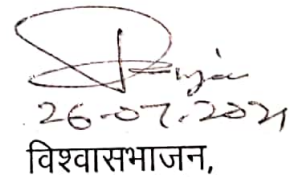 26-07-2021
विश्वासभाजन,